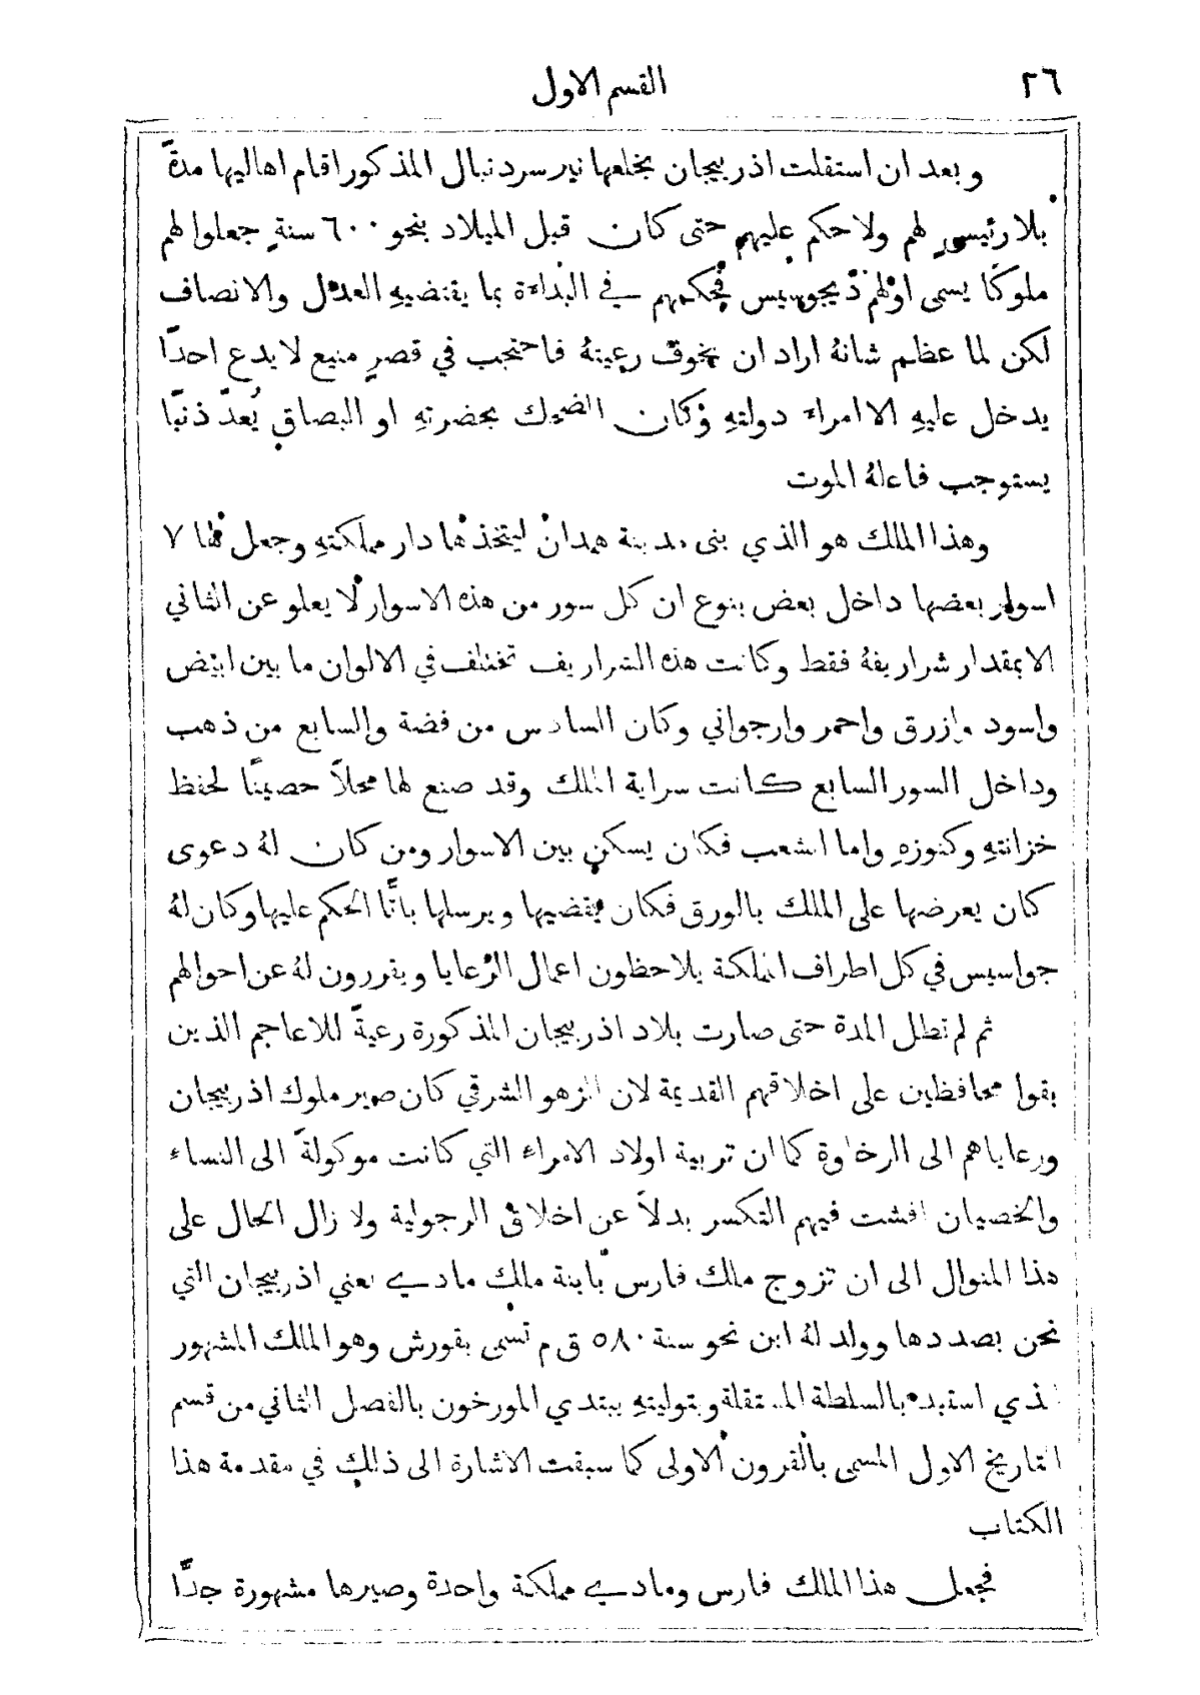 ٢٦
القسم الاول
وبعد ان استقلت اذربيجان بخلعها نير سردنبال المذكور اقام اهاليها مدةً
بلا رئيس لهم ولا حكم عليهم حتى كان قبل الميلاد بنحو ٦٠٠ سنةٍ جعلوا لهم
ملوكًا يسمى اولهم ذيجوسيس فحكمهم في البداءة بما يقتضيهِ العدل والانصاف
لكن لما عظم شانهُ اراد ان يخوف رعيتهُ فاحتجب في قصرٍ منيع لا يدع احدًا
يدخل عليهِ الا امراء دولتهِ وكان الضحك بحضرتهِ او البصاق يُعدّ ذنبًا
يستوجب فاعلهُ الموت
وهذا الملك هو الذي بنى مدينة همدان ليتخذها دار مملكتهِ وجعل لها ٧
اسوار بعضها داخل بعض بنوع ان كل سور من هذه الاسوار لا يعلو عن الثاني
الا بمقدار شراريفهُ فقط وكانت هذه الشراريف تختلف في الالوان ما بين ابيض
واسود وازرق واحمر وارجواني وكان السادس من فضة والسابع من ذهب
وداخل السور السابع كانت سراية الملك وقد صنع لها محلاً حصينًا لحفظ
خزانتهِ وكنوزهِ واما الشعب فكان يسكن بين الاسوار ومن كان لهُ دعوى
كان يعرضها على الملك بالورق فكان يقضيها ويرسلها باتًّا الحكم عليها وكان لهُ
جواسيس في كل اطراف المملكة يلاحظون اعمال الرعايا ويقررون لهُ عن احوالهم
ثم لم تطل المدة حتى صارت بلاد اذربيجان المذكورة رعيةً للاعاجم الذين
بقوا محافظين على اخلاقهم القديمة لان الزهو الشرقي كان صير ملوك اذربيجان
ورعاياهم الى الرخاوة كما ان تربية اولاد الامراء التي كانت موكولةً الى النساء
والخصيان افشت فيهم التكسر بدلاً عن اخلاق الرجولية ولا زال الحال على
هذا المنوال الى ان تزوج ملك فارس بابنة ملك مادي يعني اذربيجان التي
نحن بصددها وولد لهُ ابن نحو سنة ٥٨٠ ق م تسمى بقورش وهو الملك المشهور
الذي استبد بالسلطة المستقلة وبتوليتهِ يبتدي المورخون بالفصل الثاني من قسم
التاريخ الاول المسمى بالقرون الاولى كما سبقت الاشارة الى ذلك في مقدمة هذا
الكتاب
فجعل هذا الملك فارس ومادي مملكة واحدة وصيرها مشهورة جدًّا